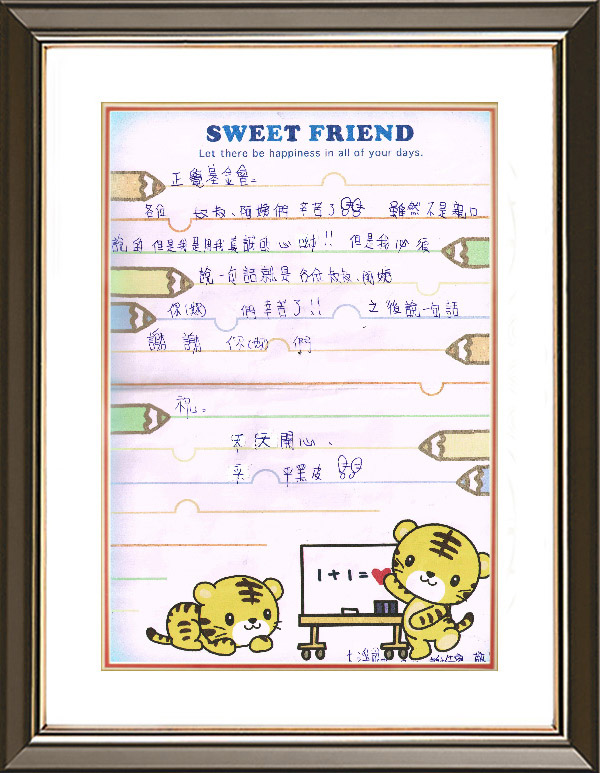 SWEET FRIEND
Let there be happiness in all of your days.
正覺基金會。
各位 叔叔、阿姨們 辛苦了 雖然不是親口
說的 但是我是用我真誠的心 !! 但是我必須
說一句話就是各位叔叔、阿姨
你(妳) 們辛苦了!! 之後說一句話
謝謝 你(妳) 們
祝。
天天開心、
1+1=
敬